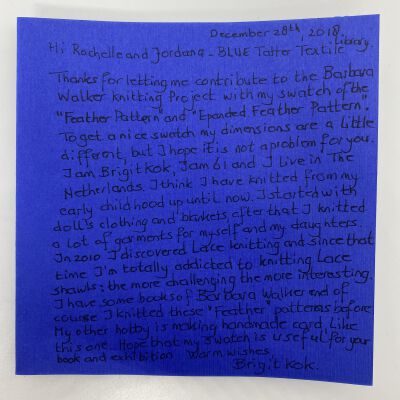 December 28th, 2018.
Hi Rochelle and Jordana - BLUE Tatter Textile Library.
Thanks for letting me contribute to the Barbara
Walker knitting Project with my swatch of the
"Feather Pattern and "Epanded Feather Pattern".
To get a nice swatch my dimensions are a little
different, but I hope it is not a problem for you.
I am Brigit Kok, I am 61 and I live in The
Netherlands. I think I have knitted from my
early childhood up until now. I started with
doll's clothing and blankets, after that I knitted
a lot of garments for myself and my daughters.
In 2010 I discovered Lace knitting and since that
time I'm totally addicted to knitting Lace
shawls; the more challenging the more interesting.
I have some books of Barbara Walker and of
course I knitted these "Feather" patterns before.
My other hobby is making handmade card, Like
this one. Hope that my swatch is useful for your
book and exhibition. Warm wishes,
Brigit Kok.